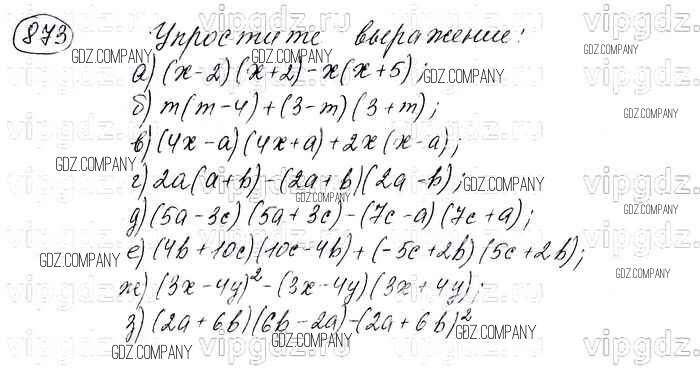 873 Упростите выражение:
а) (x-2)(x+2)-x(x+5);
б) m(m-4)+(3-m)(3+m);
в) (4x-a)(4x+a)+2x(x-a);
г) 2a(a+b)-(2a+b)(2a-b);
д) (5a-3c)(5a+3c)-(7c-a)(7c+a);
е) (4b+10c)(10c-4b)+(-5c+2b)(5c+2b);
ж) (3x-4y)²-(3x-4y)(3x+4y);
з) (2a+6b)(6b-2a)-(2a+6b)²